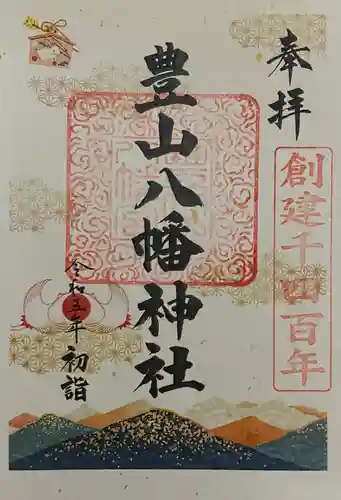 奉拝
創建千四百年
豊山八幡神社
令和五年初詣